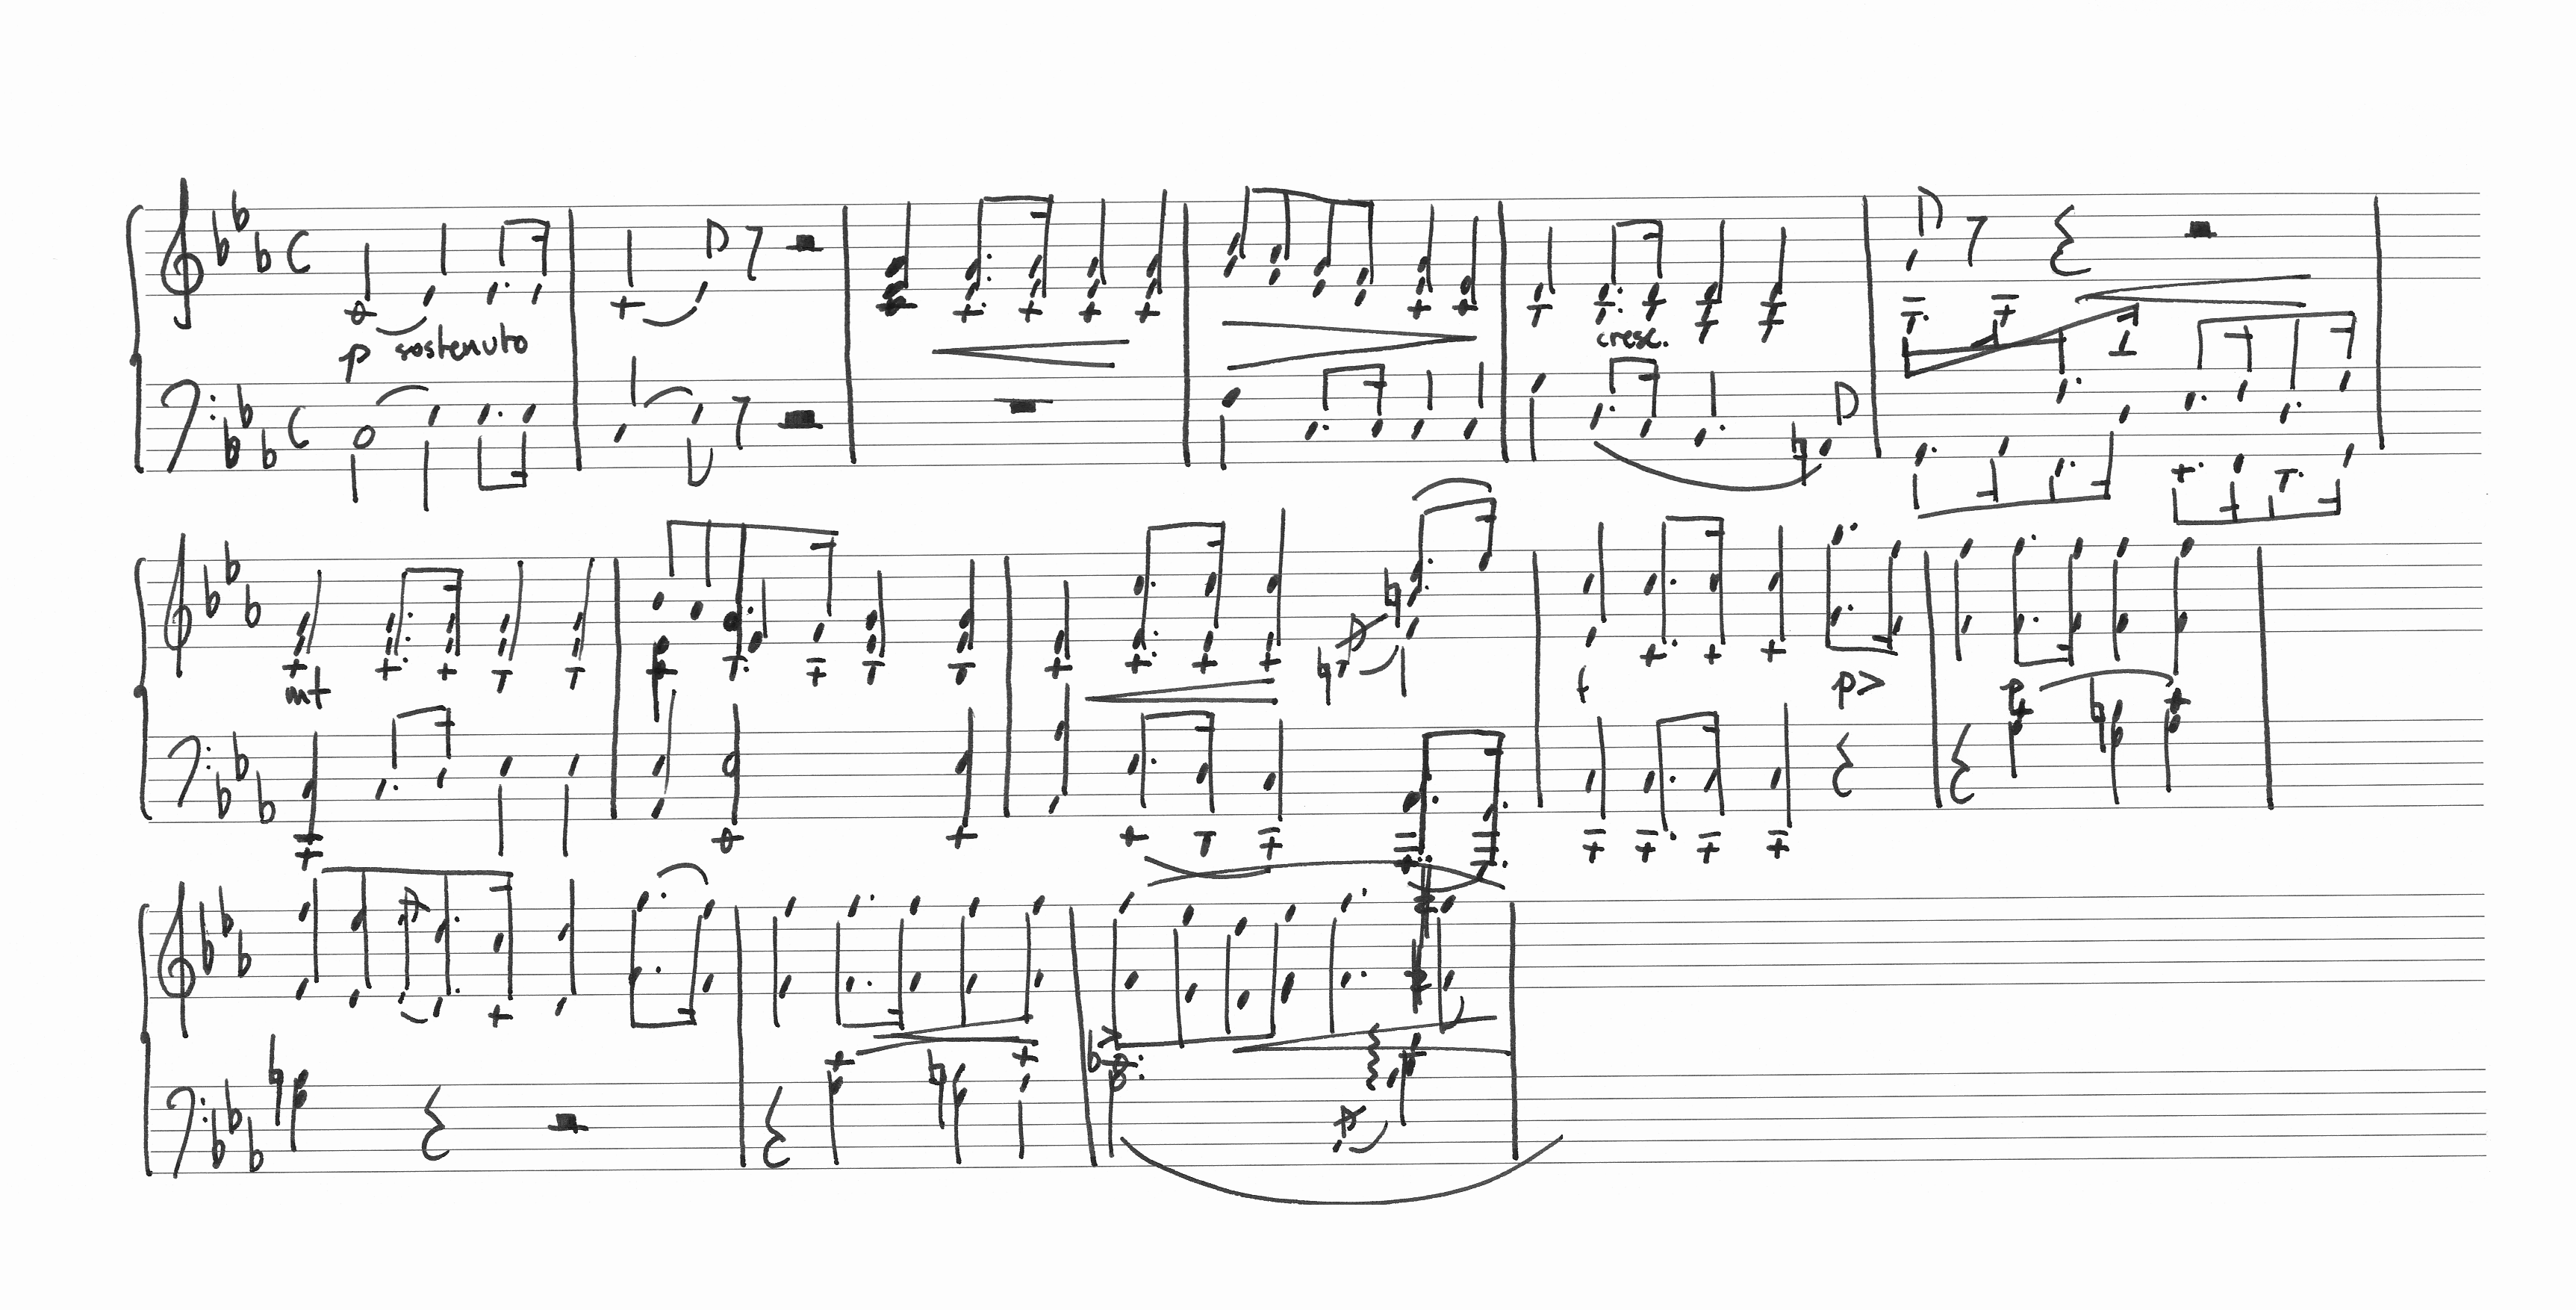 p sostenuto
cresc.
mf
f
p
p